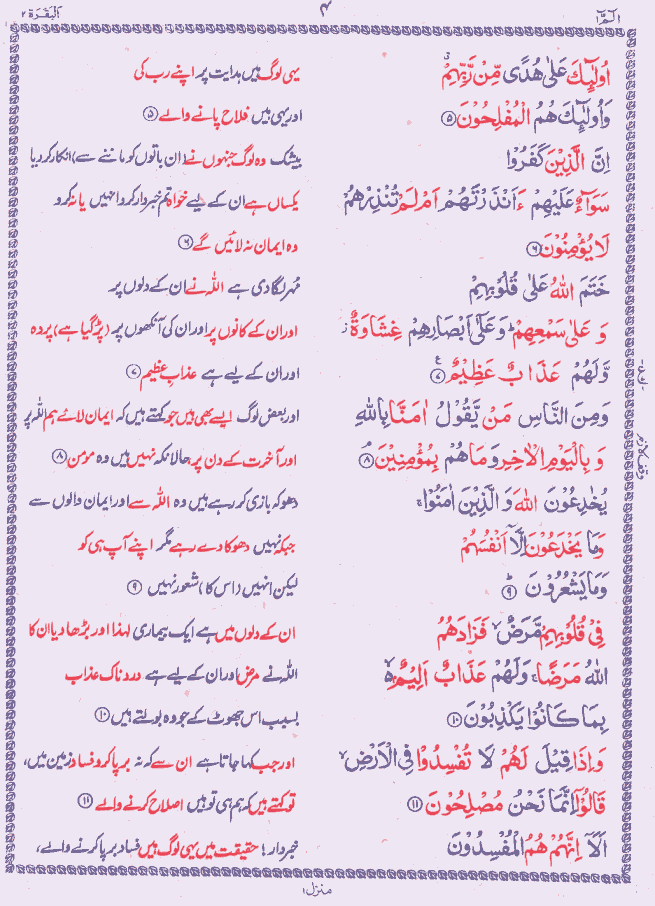 الٓمّٓ ۱ ۴ اَلْبَقَرَة ۲
اُولٰٓئِكَ عَلٰى هُدًى مِّنْ رَّبِّهِمْ ۗ یہی لوگ ہیں ہدایت پر اپنے رب کی
وَاُولٰٓئِكَ هُمُ الْمُفْلِحُوْنَ ۵ اور یہی ہیں فلاح پانے والے ۵
اِنَّ الَّذِيْنَ كَفَرُوْا بیشک وہ لوگ جنہوں نے (ان باتوں کو ماننے سے) انکار کردیا
سَوَآءٌ عَلَيْهِمْ ءَاَنْذَرْتَهُمْ اَمْ لَمْ تُنْذِرْهُمْ یکساں ہے ان کے لیے خواہ تم خبردار کرو انہیں یا نہ کرو
لَا يُؤْمِنُوْنَ ۶ وہ ایمان نہ لائیں گے ۶
خَتَمَ اللّٰهُ عَلٰى قُلُوْبِهِمْ مُہر لگادی ہے اللہ نے ان کے دلوں پر
وَ عَلٰى سَمْعِهِمْ ؕ وَعَلٰٓى اَبْصَارِهِمْ غِشَاوَةٌ ز اور ان کے کانوں پر اور ان کی آنکھوں پر (پڑ گیا ہے) پردہ
وَّلَهُمْ عَذَابٌ عَظِيْمٌ ۷ اور ان کے لیے ہے عذاب عظیم ۷
وَمِنَ النَّاسِ مَنْ يَّقُوْلُ اٰمَنَّا بِاللّٰهِ اور بعض لوگ ایسے بھی ہیں جو کہتے ہیں کہ ایمان لائے ہم اللہ پر
وَ بِالْيَوْمِ الْاٰخِرِ وَمَا هُمْ بِمُؤْمِنِيْنَ ۘ ۸ اور آخرت کے دن پر حالانکہ نہیں ہیں وہ مؤمن ۸
يُخٰدِعُوْنَ اللّٰهَ وَ الَّذِيْنَ اٰمَنُوْا ۚ دھوکہ بازی کر رہے ہیں وہ اللہ سے اور ایمان والوں سے
وَمَا يَخْدَعُوْنَ اِلَّآ اَنْفُسَهُمْ جبکہ نہیں دھوکا دے رہے مگر اپنے آپ ہی کو
وَمَا يَشْعُرُوْنَ ؕ ۹ لیکن انہیں (اس کا) شعور نہیں ۹
فِيْ قُلُوْبِهِمْ مَّرَضٌ ۙ فَزَادَهُمُ ان کے دلوں میں ہے ایک بیماری لہٰذا اور بڑھا دیا ان کا
اللّٰهُ مَرَضًا ۚ وَلَهُمْ عَذَابٌ اَلِيْمٌ ۢ ۙ اللہ نے مرض اور ان کے لیے ہے دردناک عذاب
بِمَا كَانُوْا يَكْذِبُوْنَ ۱۰ بسبب اس جھوٹ کے جو وہ بولتے ہیں ۱۰
وَاِذَا قِيْلَ لَهُمْ لَا تُفْسِدُوْا فِي الْاَرْضِ ۙ اور جب کہا جاتا ہے ان سے کہ نہ برپا کرو فساد زمین میں،
قَالُوْٓا اِنَّمَا نَحْنُ مُصْلِحُوْنَ ۱۱ تو کہتے ہیں کہ ہم ہی تو ہیں اصلاح کرنے والے ۱۱
اَلَآ اِنَّهُمْ هُمُ الْمُفْسِدُوْنَ خبردار! حقیقت میں یہی لوگ ہیں فساد برپا کرنے والے،
منزل ۱